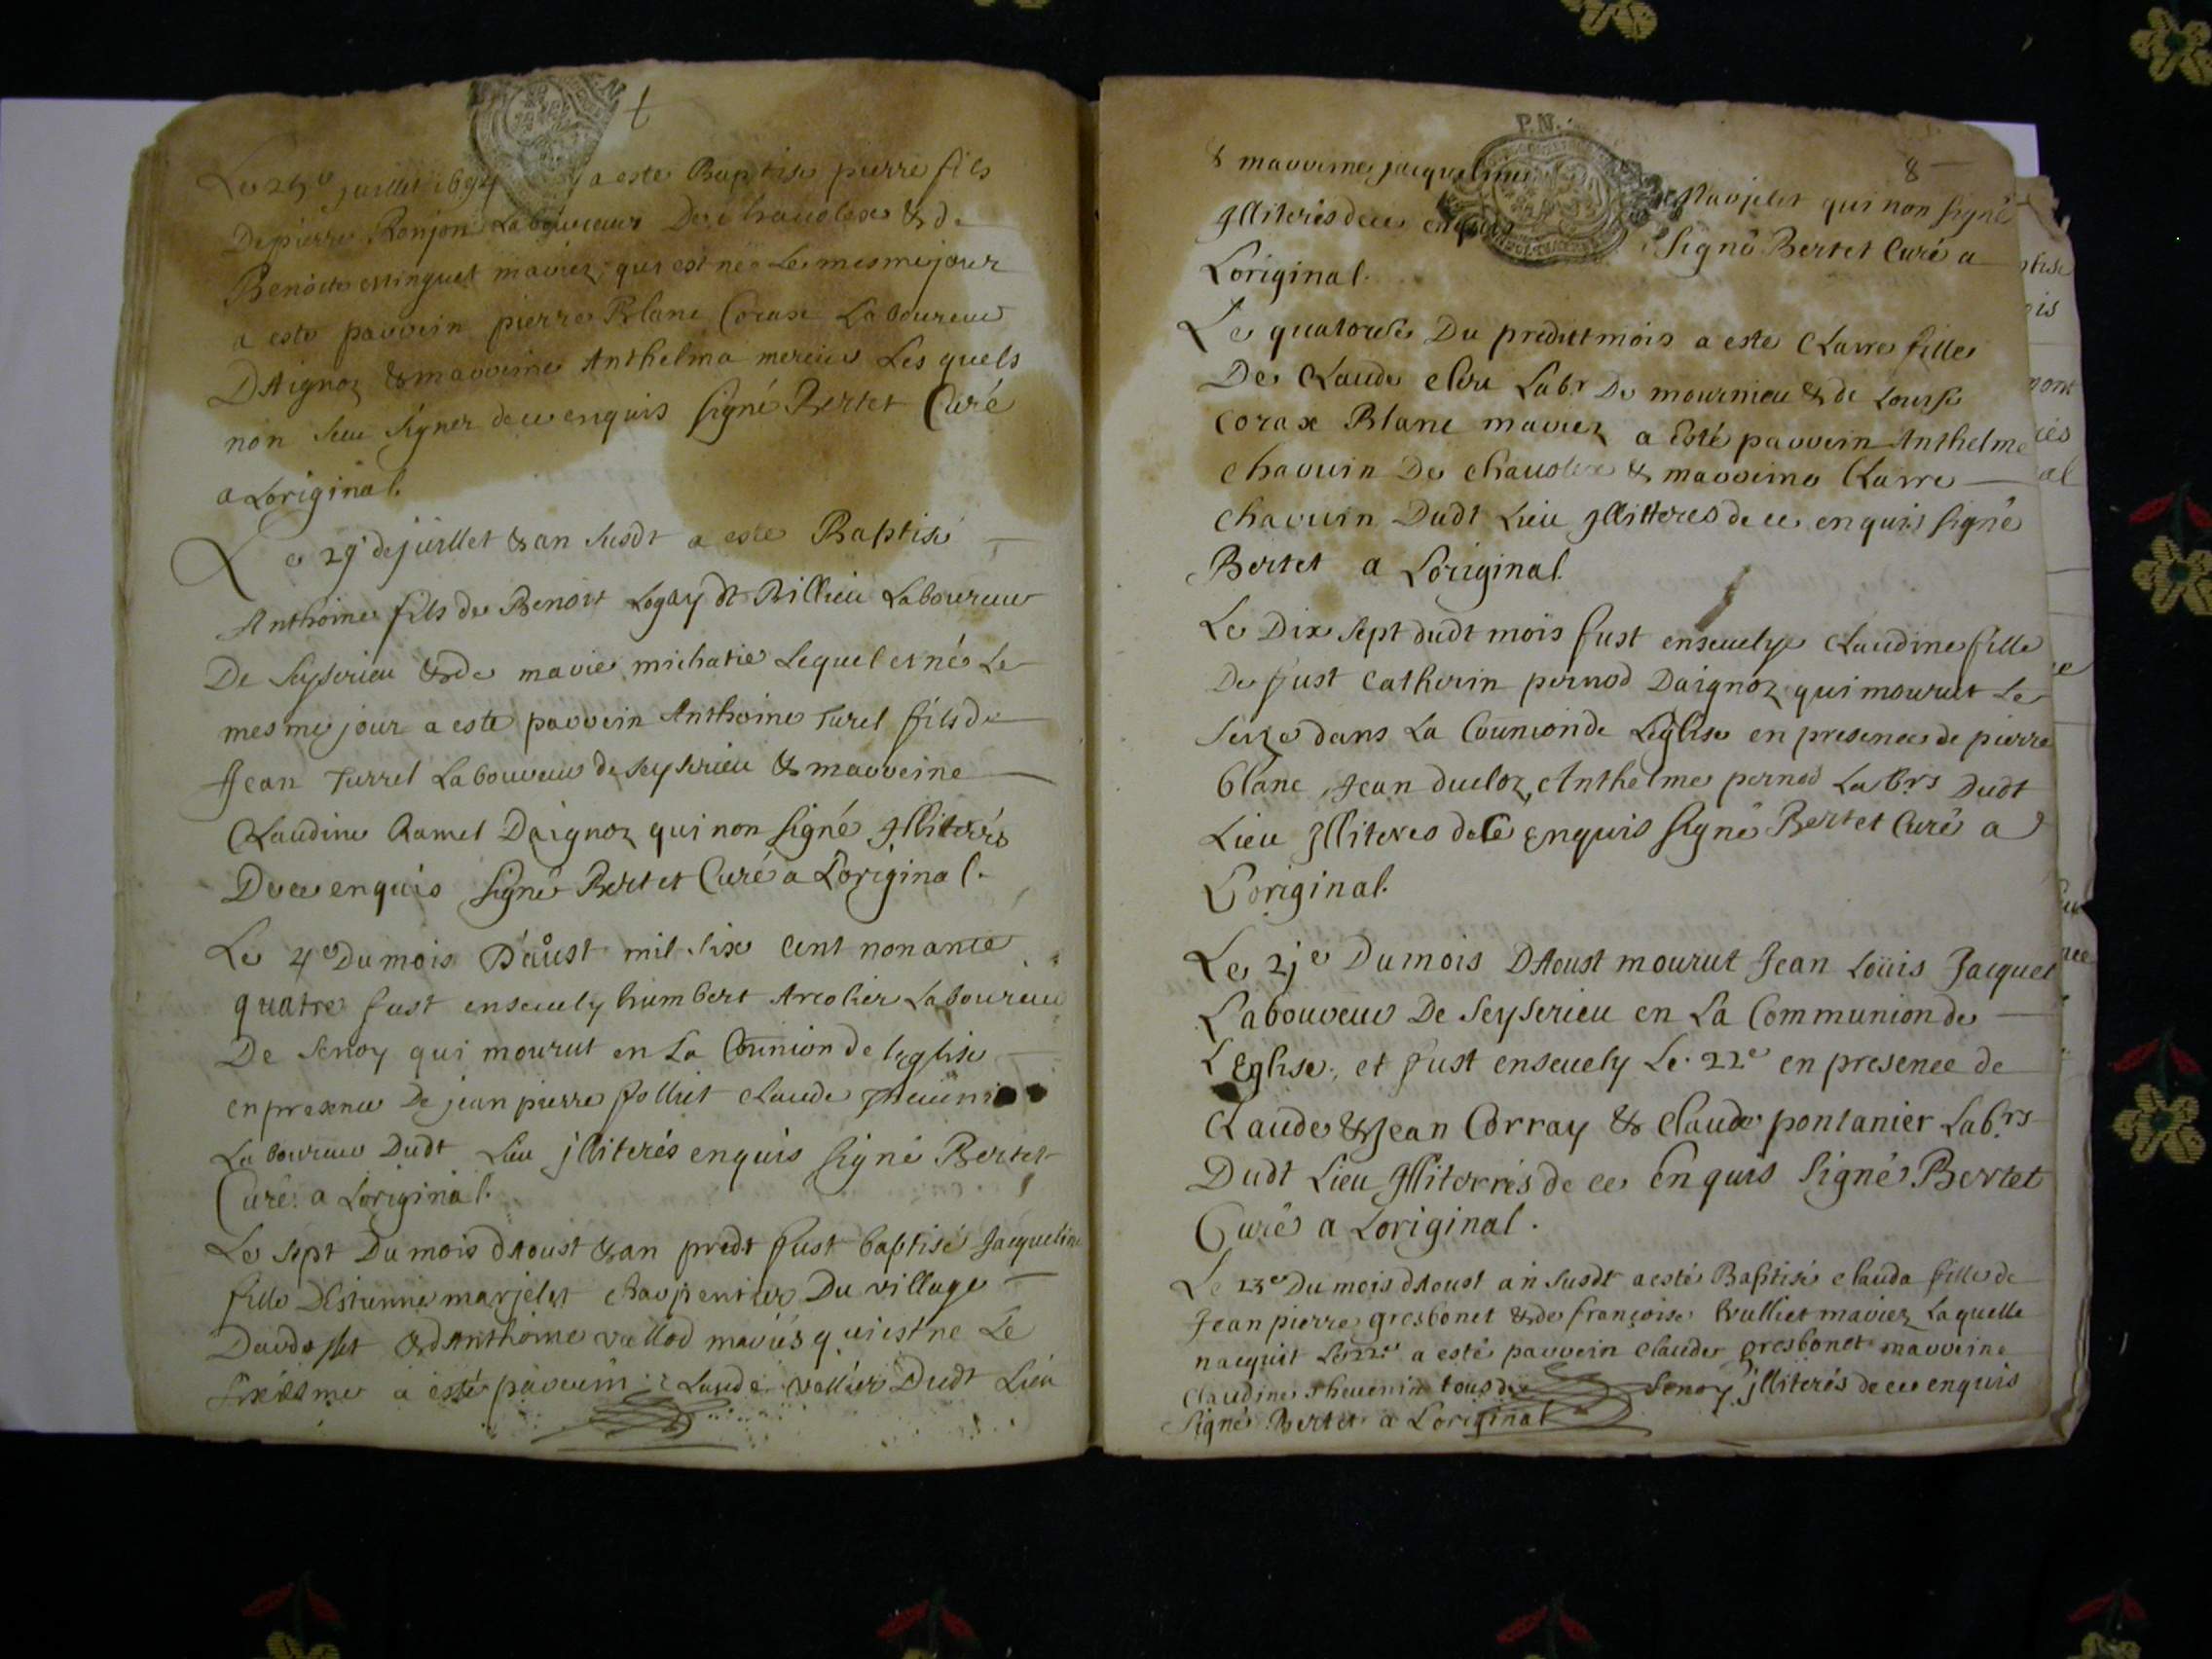 Le 25e juillet 1694 a este Baptisé pierre fils
De pierre Ronjon Laboureur De chavolex & de
Benoite estinguet mariez, qui est né Le mesme jour
a este parrein pierre Blanc Corax Laboureur
DAignoz & marreine Anthelma mercier Les quels
non sceu signer de ce enquis signé Bertet Curé
a Loriginal.
Le 29e de juillet & an susdt a este Baptisé
Anthoine fils de Benoit Logay dt Billieu Laboureur
De Seyserieu & de marie michatie Lequel est né Le
mesme jour a este parrein Anthoine Turel fils de
Jean Turrel Laboureur de Seyserieu & marreine
Claudine Ramel Daignoz qui non signé Illiterés
De ce enquis signé Bertet Curé a Loriginal.
Le 4e Du mois D'aůst mil six cent nonante
quatre fust enseuely humbert Arcolier Laboureur
De Senoy qui mourut en La Coũnion de leglise
en presence De jean pierre folliet claude
Laboureur Dudt Lieu jlliterés enquis signé Bertet
Curé a Loriginal.
Le sept Du mois dAoust & an predt fust baptisé Jacqueline
fille DEstienne marjelet charpentier Du village
& dAnthoine vallod mariés qui est né Le
a esté parrein Claude vallier Dudt Lieu
P.N.
8
& marreine jacqueline marjelet qui non signé
Jlliterés de ce enquis signé Bertet Curé a
Loriginal.
Le quatorse Du predict mois a este Clarre fille
De Claude clou Labr De mournieu & de Louise
Corax Blanc mariez a esté parrein Anthelme
Charvin De chavolex & marreine Clarre
Charvin Dudt Lieu Jllitteres de ce enquis signé
Bertet a Loriginal.
Le Dix sept dudt mois fust enseuelye Claudine fille
De fust Catherin pernod Daignoz qui mourut Le
seize dans La Coũnion de Léglise en presence de pierre
blanc, Jean ducloz, Anthelme pernod Labrs Dudt
Lieu Jlliteres de Ce enquis signé Bertet Curé a
Loriginal.
Le 21e Du mois DAoust mourut Jean Loüis Jacquet
Laboureur De Seyserieu en La Communion de
LEglise, et fust enseuely Le 22e en presence de
Claude & Jean Corray & Claude pontanier Labrs
Dudt Lieu Jlliterrés de ce Enquis Signé Bertet
Curé a Loriginal.
Le 23e Du mois dAoust an susdt a esté Baptisé clauda fille de
Jean pierre gresbonet & de françoise Vulliet mariez Laquelle
nacquit Le 22e a esté parrein claude gresbonet marreine
Claudine thevenin tous de Senoy jlliterés de ce enquis
signé Bertet a Loriginal